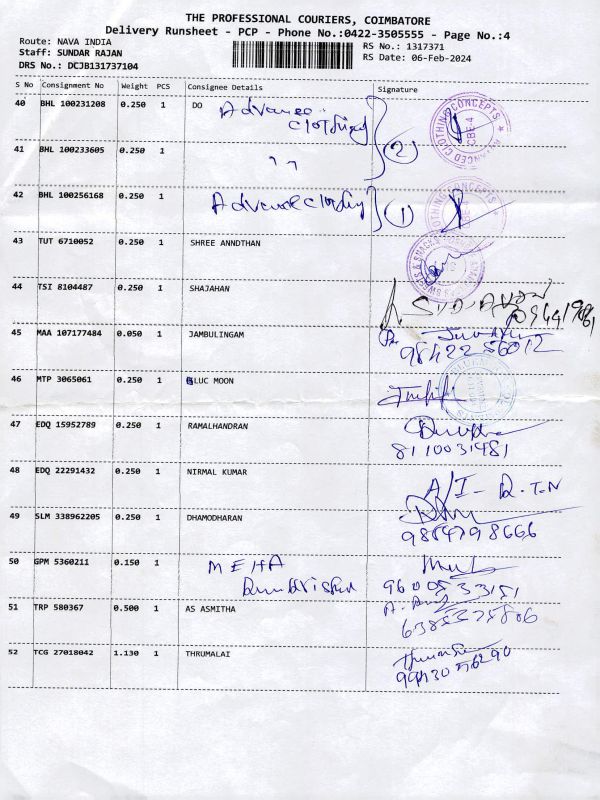 THE PROFESSIONAL COURIERS, COIMBATORE
Delivery Runsheet - PCP - Phone No.:0422-3505555 - Page No.:4
Route: NAVA INDIA
Staff: SUNDAR RAJAN
DRS No.: DCJB131737104
RS No.: 1317371
RS Date: 06-Feb-2024
S No Consignment No Weight PCS Consignee Details Signature
40 BHL 100231208 0.250 1 DO Advance clothing
41 BHL 100233605 0.250 1 ,, (2)
42 BHL 100256168 0.250 1 Advance clothing (1)
43 TUT 6710052 0.250 1 SHREE ANNDTHAN
44 TSI 8104487 0.250 1 SHAJAHAN
45 MAA 107177484 0.050 1 JAMBULINGAM
46 MTP 3065061 0.250 1 GLUC MOON
47 EDQ 15952789 0.250 1 RAMALHANDRAN
8110031481
48 EDQ 22291432 0.250 1 NIRMAL KUMAR
49 SLM 338962205 0.250 1 DHAMODHARAN
50 GPM 5360211 0.150 1 MEHA
9600533151
51 TRP 580367 0.500 1 AS ASMITHA
52 TCG 27018042 1.130 1 THRUMALAI